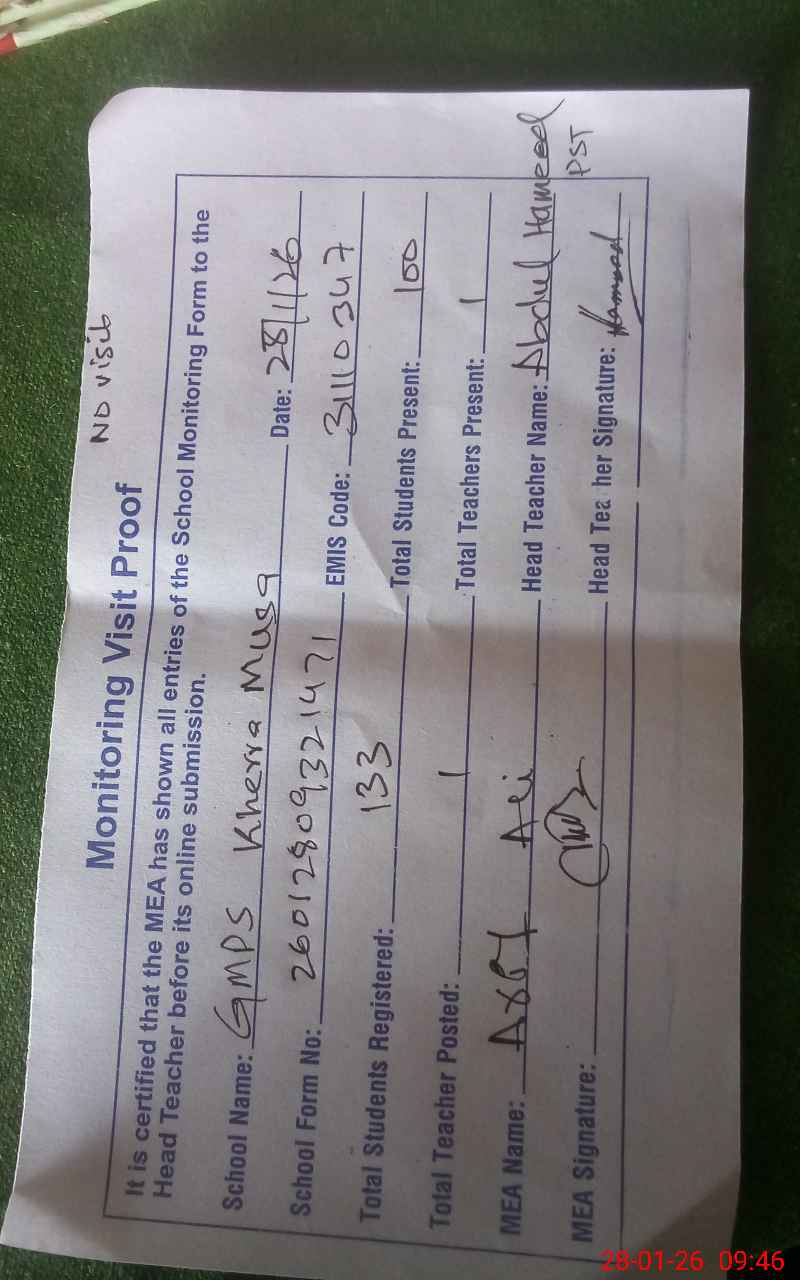 No visit
Monitoring Visit Proof
It is certified that the MEA has shown all entries of the School Monitoring Form to the
Head Teacher before its online submission.
School Name: GMPS Kherra Musa Date: 28/1/26
School Form No: 26012809321471 EMIS Code: 31110347
Total Students Registered: 133 Total Students Present: 100
Total Teacher Posted: 1 Total Teachers Present: 1
MEA Name: Ali Head Teacher Name: Abdul Hameed
PST
MEA Signature: Head Teacher Signature: Hameed
28-01-26 09:46